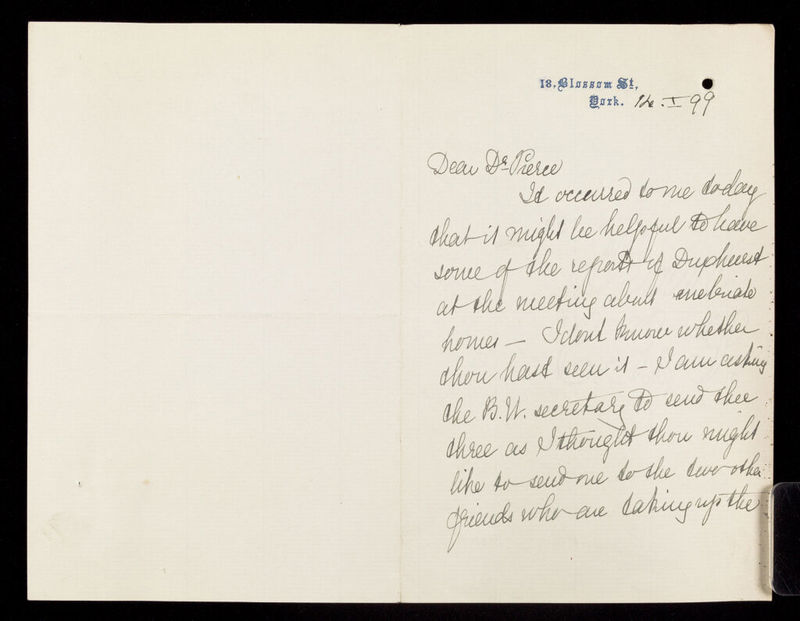 18, Blossom St,
York. 14.I.99
Dear Dr Pierce
It occurred to me today
that it might be helpful to have
some of the reports of Duxhurst
at the meeting about inebriate
homes — I dont know whether
thou hast seen it — I am asking
the B.W. secretary to send thee
three as I thought thou might
like to send one to the two other
friends who are taking up the